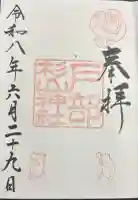 奉拝
戸部杉山神社
令和八年六月二十九日